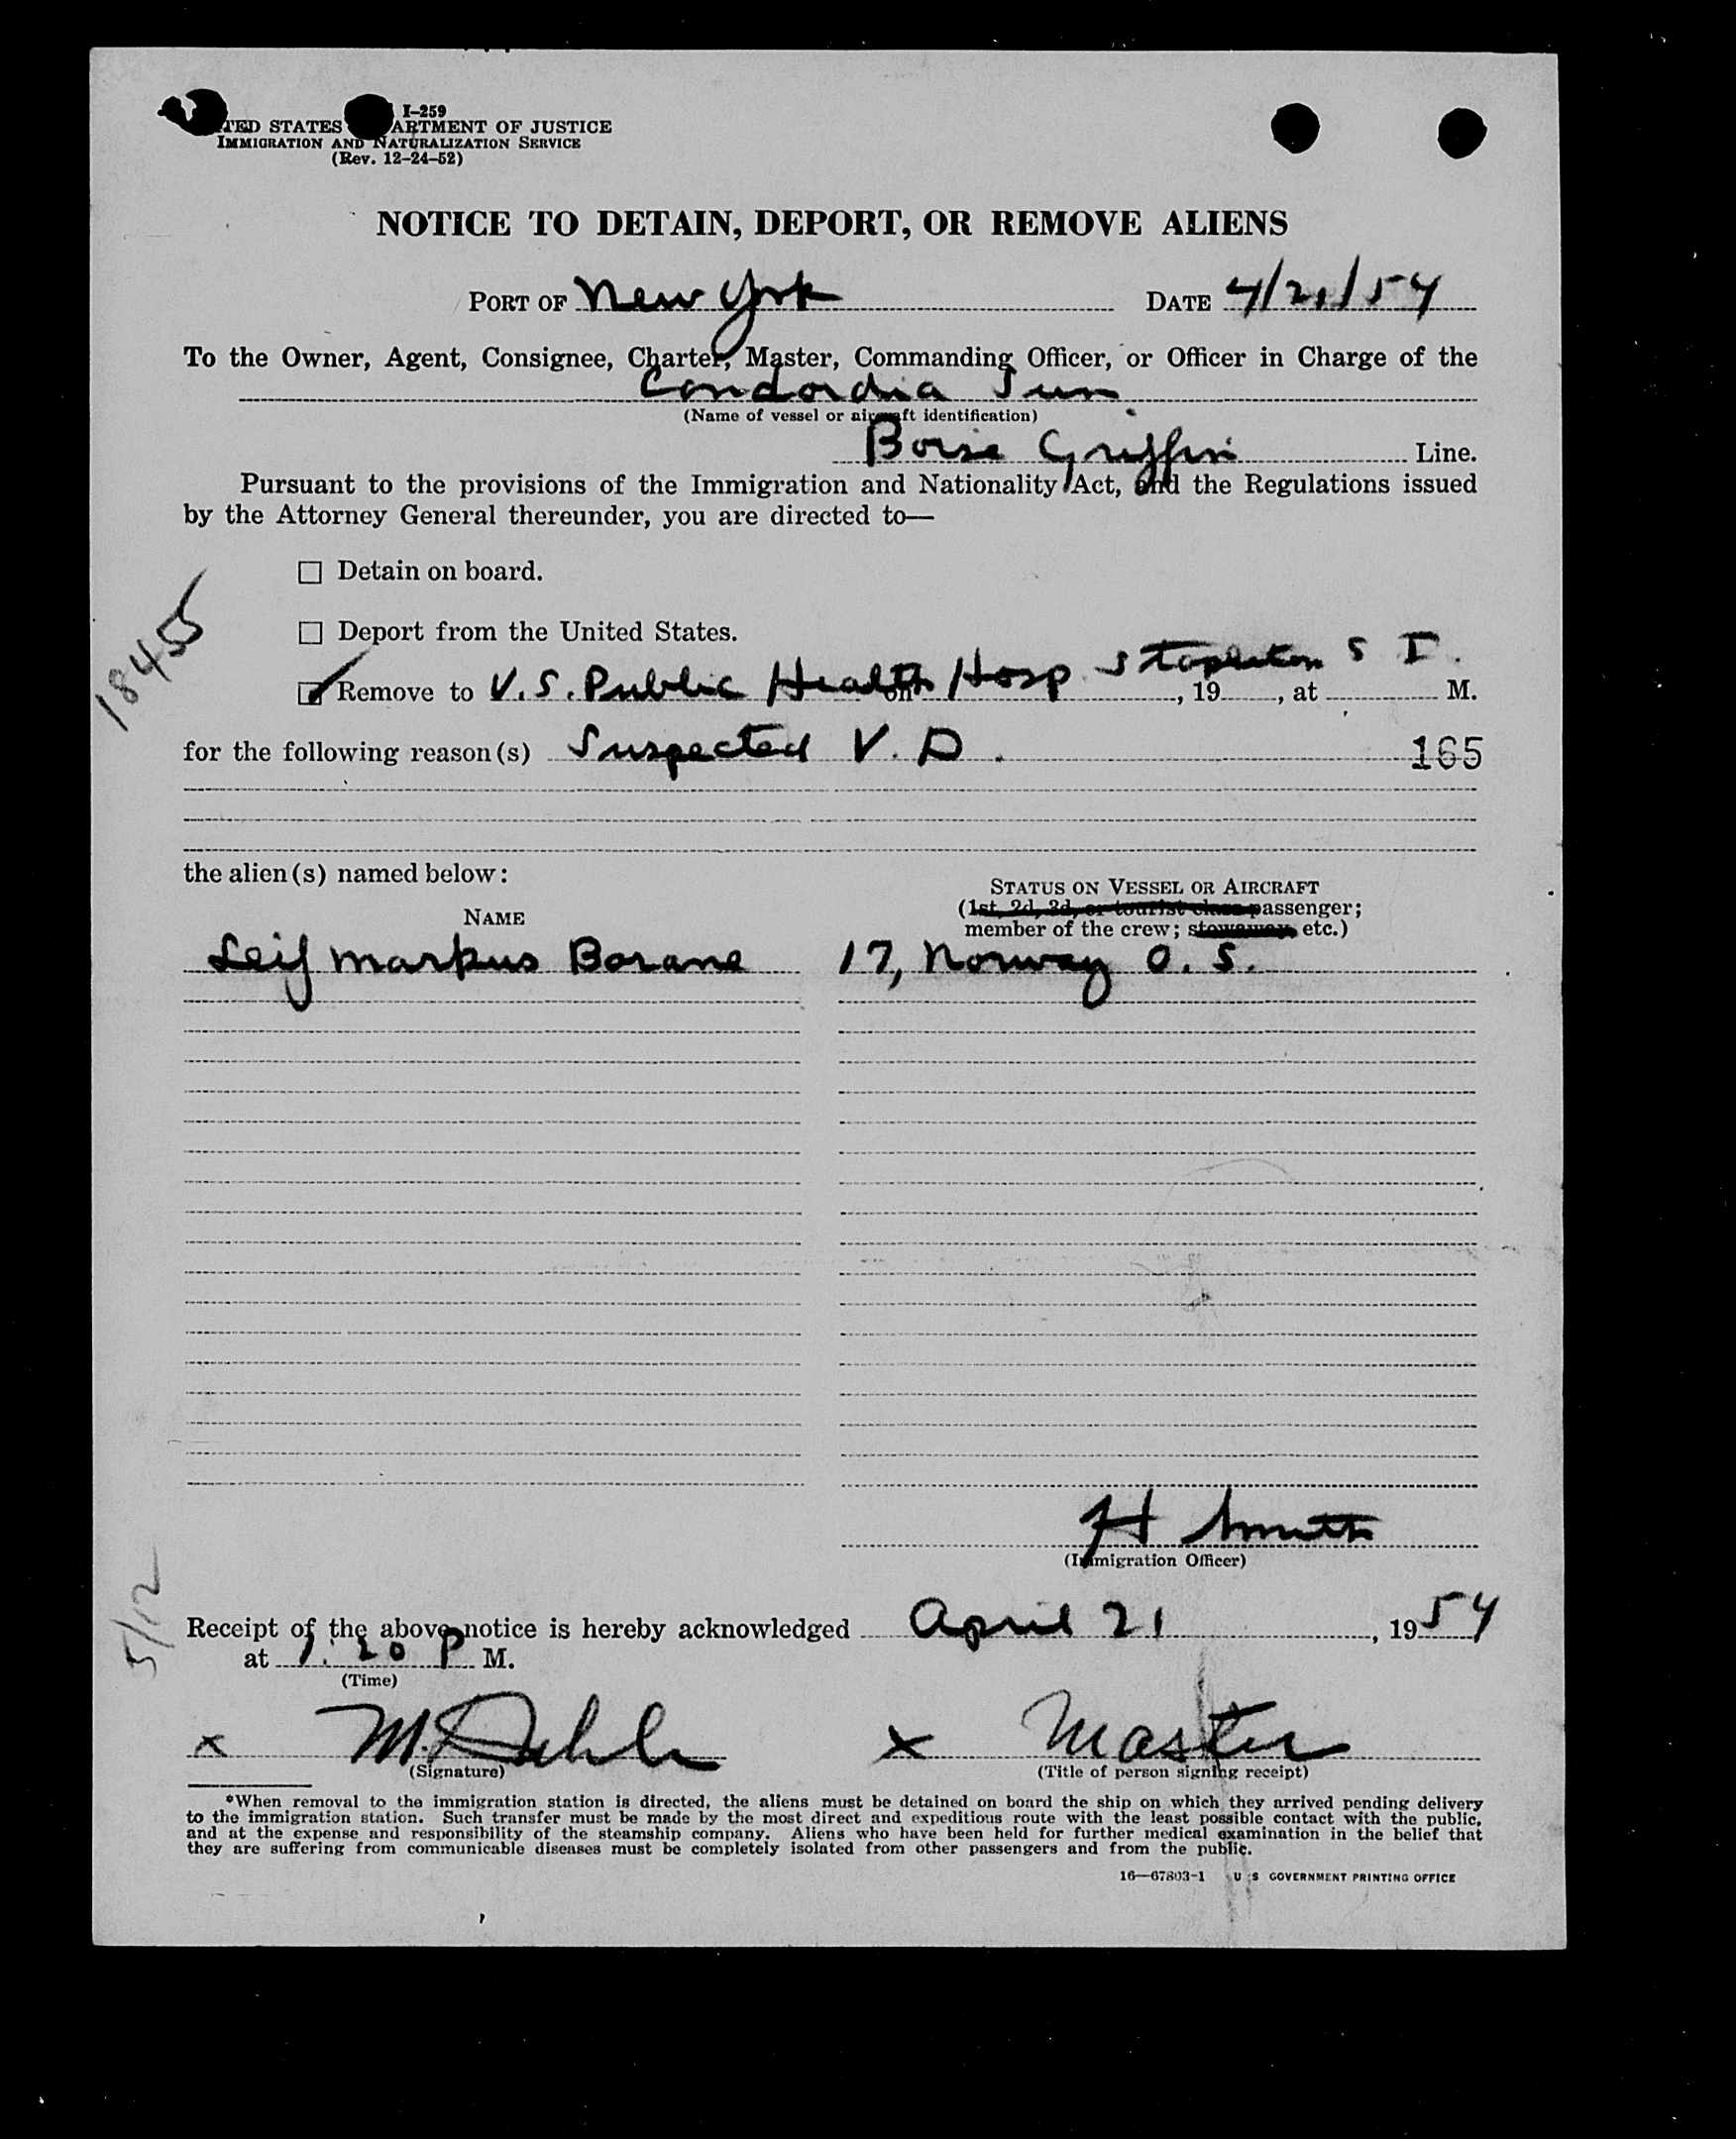 I-259
TED STATES ARTMENT OF JUSTICE
IMMIGRATION AND NATURALIZATION SERVICE
(Rev. 12-24-52)
NOTICE TO DETAIN, DEPORT, OR REMOVE ALIENS
PORT OF New York DATE 4/21/54
To the Owner, Agent, Consignee, Charter, Master, Commanding Officer, or Officer in Charge of the
Condordia Sun
(Name of vessel or aircraft identification)
Boise Griffin Line.
Pursuant to the provisions of the Immigration and Nationality Act, and the Regulations issued
by the Attorney General thereunder, you are directed to—
Detain on board.
18455
Deport from the United States.
Remove to U.S. Public Health Hosp Stapleton S I. on , 19 , at M.
for the following reason(s) Suspected V. D. 165
the alien(s) named below:
STATUS ON VESSEL OR AIRCRAFT
NAME
(1st, 2d, 3d, or tourist class passenger;
member of the crew; stowaway, etc.)
Leif Markus Borane 17, Norway O. S.
H Smith
(Immigration Officer)
5/12
Receipt of the above notice is hereby acknowledged April 21, 1954
at 1:20 P M.
(Time)
x M. Dahle x Master
(Signature) (Title of person signing receipt)
*When removal to the immigration station is directed, the aliens must be detained on board the ship on which they arrived pending delivery
to the immigration station. Such transfer must be made by the most direct and expeditious route with the least possible contact with the public,
and at the expense and responsibility of the steamship company. Aliens who have been held for further medical examination in the belief that
they are suffering from communicable diseases must be completely isolated from other passengers and from the public.
16—67803-1 U S GOVERNMENT PRINTING OFFICE